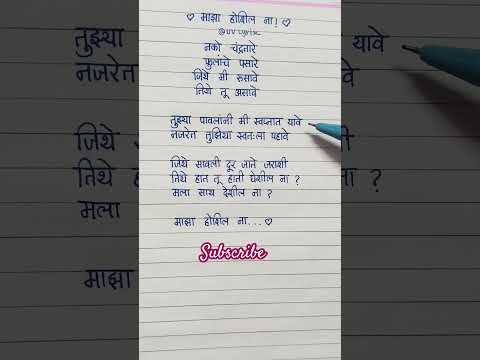 ♡ माझा होशील ना! ♡
@UV Lyrix
नको चंद्रतारे
फुलांचे पसारे
जिथे मी रुसावे
तिथे तू असावे
तुझ्या पावलांनी मी स्वप्नात यावे
नजरेत तुझिया स्वतःला पहावे
जिथे सावली दूर जाते जराशी
तिथे हात तू हाती घेशील ना ?
मला साथ देशील ना ?
माझा होशील ना...♡
Subscribe